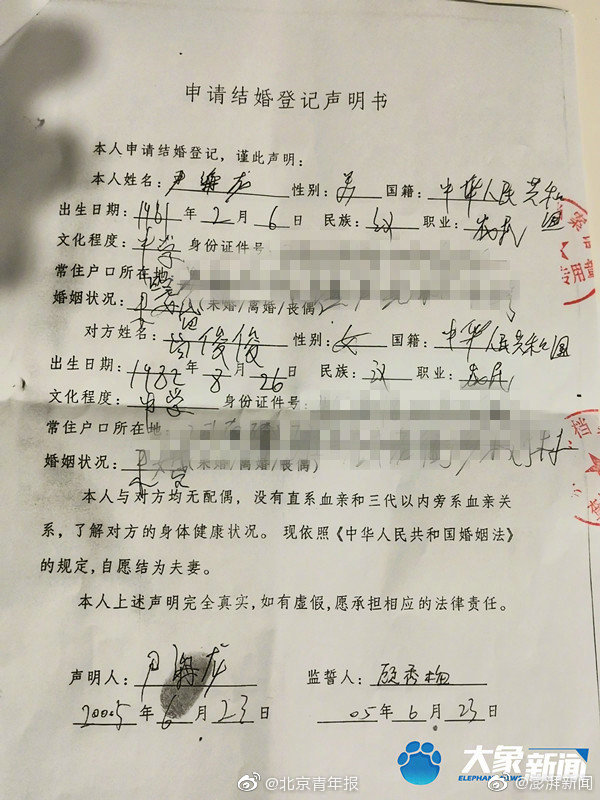 申请结婚登记声明书
本人申请结婚登记，谨此声明：
本人姓名：尹 龙 性别：男 国籍：中华人民共和国
出生日期：1961年2月6日 民族：汉 职业：农民
文化程度：中学 身份证件号：
常住户口所在地：
婚姻状况：未婚（未婚/离婚/丧偶）
对方姓名：俊俊 性别：女 国籍：中华人民共和国
出生日期：1982年8月26日 民族：汉 职业：农民
文化程度：中学 身份证件号：
常住户口所在地：
婚姻状况：（未婚/离婚/丧偶）
本人与对方均无配偶，没有直系血亲和三代以内旁系血亲关
系，了解对方的身体健康状况。现依照《中华人民共和国婚姻法》
的规定，自愿结为夫妻。
本人上述声明完全真实，如有虚假，愿承担相应的法律责任。
声明人：尹 龙 监誓人：顾秀梅
2005年6月23日 05年6月23日
专用章
大象新闻
ELEPHANT NEWS
@北京青年报 @澎湃新闻